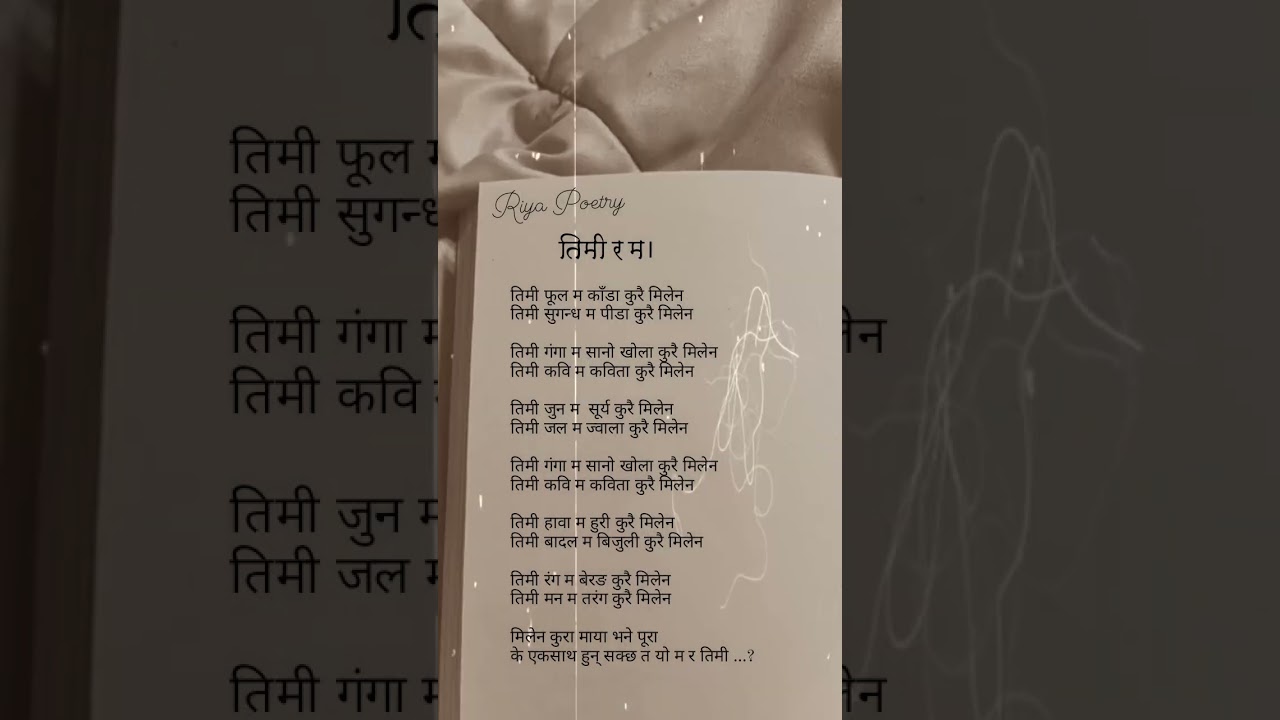 Riya Poetry
तिमी र म।
तिमी फूल म काँडा कुरै मिलेन
तिमी सुगन्ध म पीडा कुरै मिलेन
तिमी गंगा म सानो खोला कुरै मिलेन
तिमी कवि म कविता कुरै मिलेन
तिमी जुन म सूर्य कुरै मिलेन
तिमी जल म ज्वाला कुरै मिलेन
तिमी गंगा म सानो खोला कुरै मिलेन
तिमी कवि म कविता कुरै मिलेन
तिमी हावा म हुरी कुरै मिलेन
तिमी बादल म बिजुली कुरै मिलेन
तिमी रंग म बेरङ कुरै मिलेन
तिमी मन म तरंग कुरै मिलेन
मिलेन कुरा माया भने पूरा
के एकसाथ हुन् सक्छ त यो म र तिमी ...?